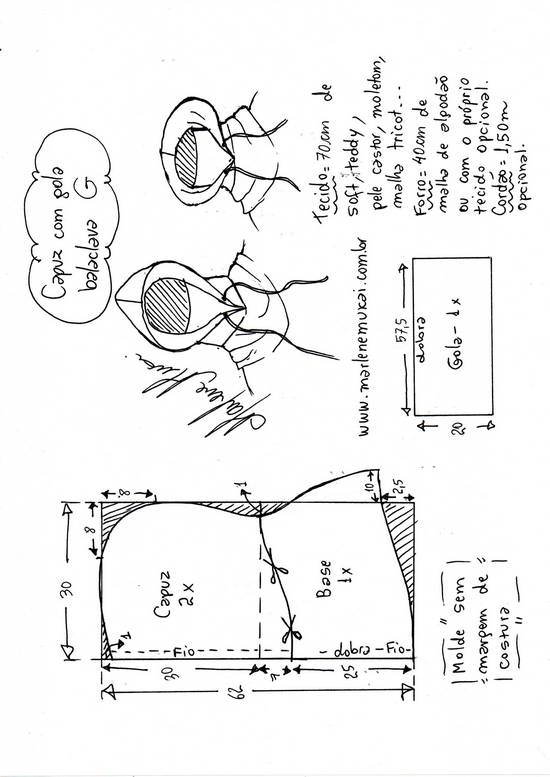 Capuz com gola
balaclava G
Tecido = 70cm de
soft, teddy,
pele castor, moletom,
malha tricot...
Forro = 40cm de
malha de algodão
ou com o próprio
tecido opcional.
Cordão = 1,50m
opcional.
www.marlenemukai.com.br
57,5
dobra
Gola - 1x
20
30
8
8
1
Capuz
2x
1
Fio
10
2,5
Base
1x
dobra - Fio
30
7
25
62
Molde sem
margem de
costura